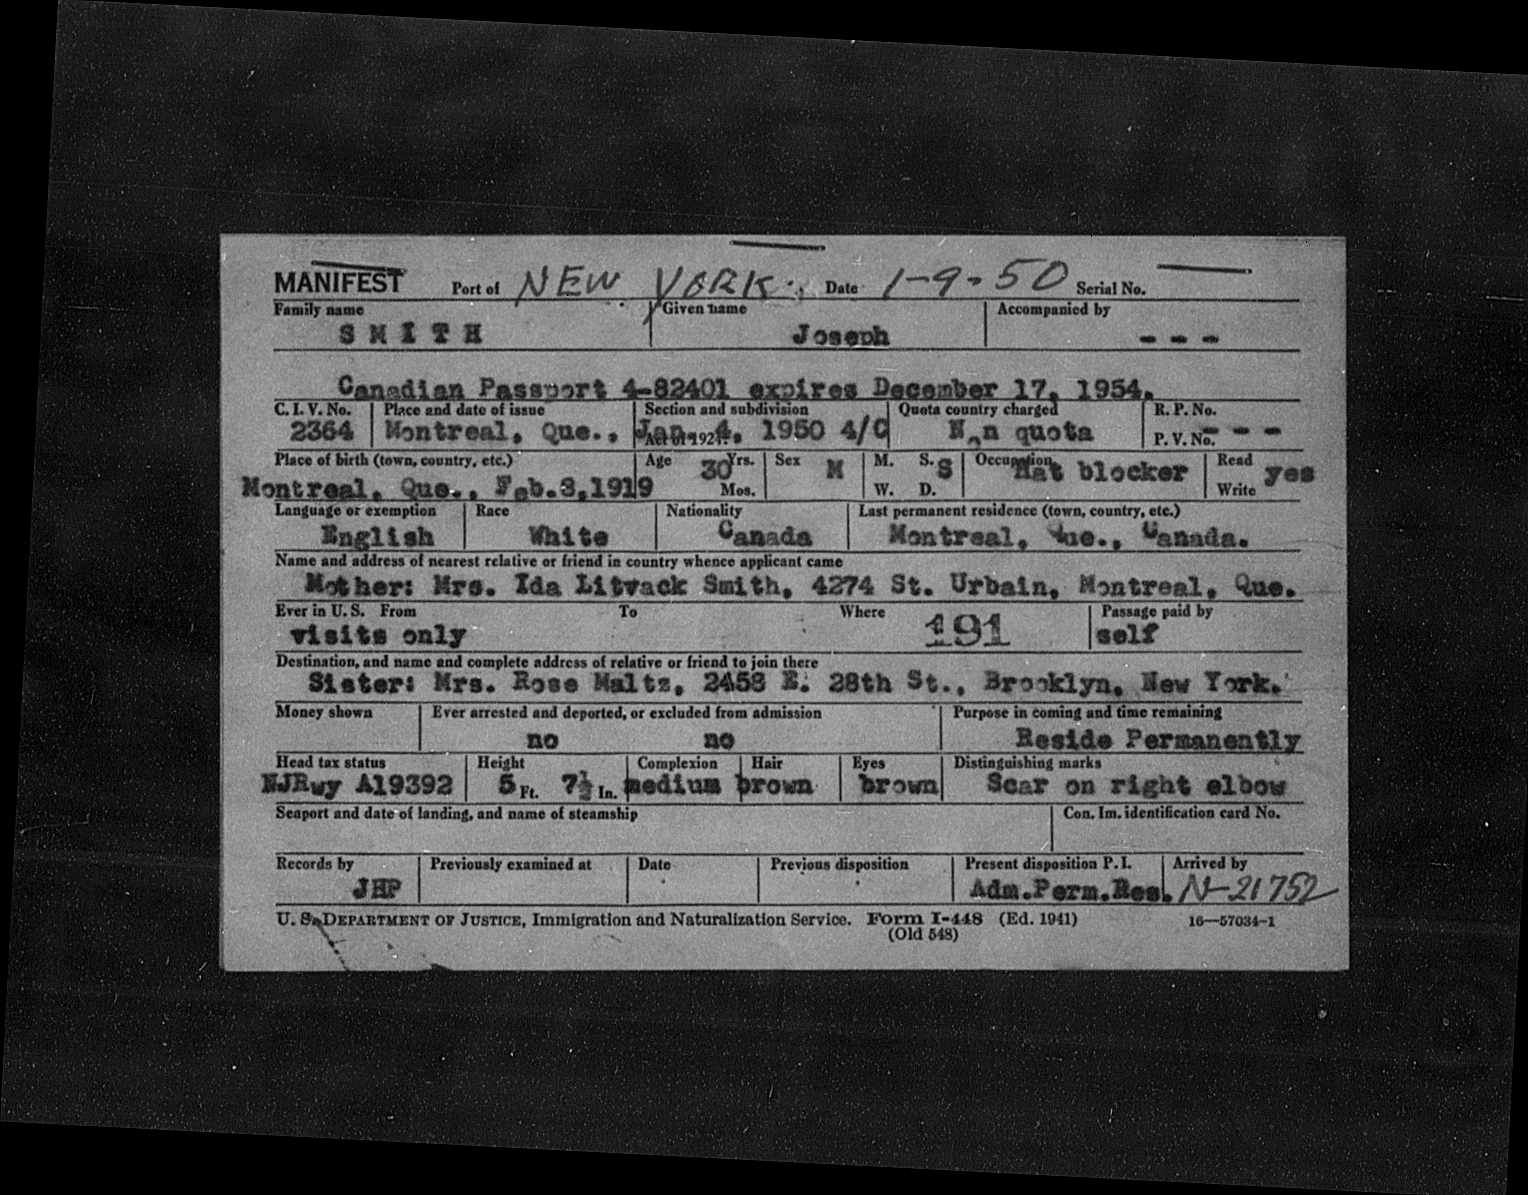 MANIFEST Port of NEW YORK. Date 1-9-50 Serial No.
Family name Given name Accompanied by
S M I T H Joseph - - -
Canadian Passport 4-82401 expires December 17, 1954.
C. I. V. No. Place and date of issue Section and subdivision Quota country charged R. P. No.
2364 Montreal, Que., Jan. 4, 1950 4/C N^n quota - - -
Act of 1924. P. V. No.
Place of birth (town, country, etc.) Age 30 Yrs. Sex M M. S. S Occupation Hat blocker Read yes
Montreal, Que., Feb.3,1919 Mos. W. D. Write
Language or exemption Race Nationality Last permanent residence (town, country, etc.)
English White Canada Montreal, Que., Canada.
Name and address of nearest relative or friend in country whence applicant came
Mother: Mrs. Ida Litvack Smith, 4274 St. Urbain, Montreal, Que.
Ever in U. S. From To Where Passage paid by
visits only 191 self
Destination, and name and complete address of relative or friend to join there
Sister: Mrs. Rose Maltz, 2458 E. 28th St., Brooklyn, New York.
Money shown Ever arrested and deported, or excluded from admission Purpose in coming and time remaining
no no Reside Permanently
Head tax status Height Complexion Hair Eyes Distinguishing marks
NJRwy A19392 5 Ft. 7½ In. medium brown brown Scar on right elbow
Seaport and date of landing, and name of steamship Con. Im. identification card No.
Records by Previously examined at Date Previous disposition Present disposition P. I. Arrived by
JHP Adm.Perm.Res. N-21752
U. S. DEPARTMENT OF JUSTICE, Immigration and Naturalization Service. Form I-448 (Ed. 1941) 16—57034-1
(Old 548)